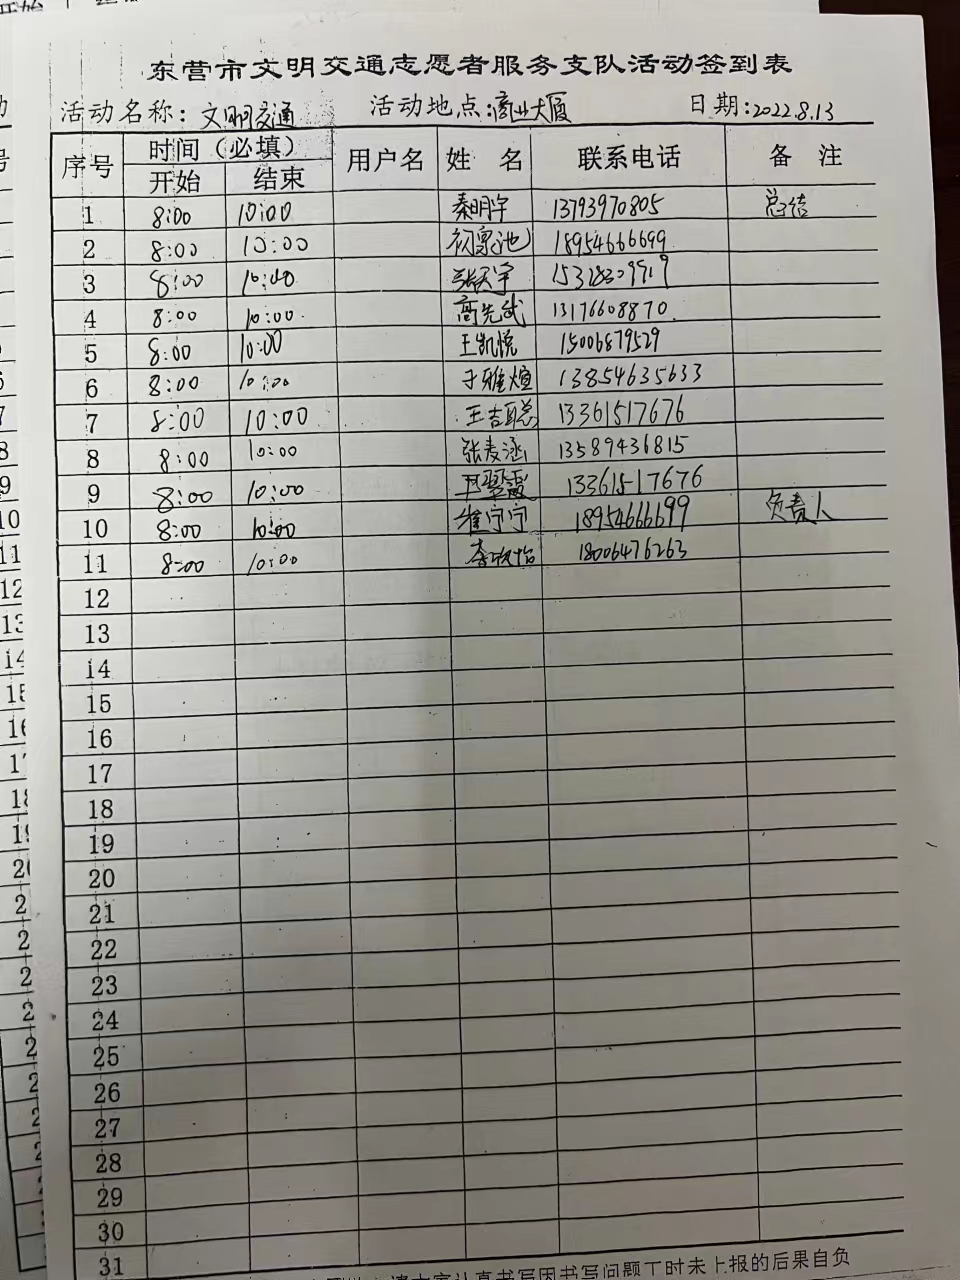 东营市文明交通志愿者服务支队活动签到表
活动名称：文明交通 活动地点：商业大厦 日期：2022.8.13
序号 时间（必填） 用户名 姓 名 联系电话 备 注
开始 结束
1 8:00 10:00 秦明宇 13793970805 总结
2 8:00 10:00 初泉池 18954666699
3 8:00 10:00 张天宇
4 8:00 10:00 高先武 13176608870
5 8:00 10:00 王凯悦 15006879529
6 8:00 10:00 于雅煊 13854635633
7 8:00 10:00 王吉聪 13361517676
8 8:00 10:00 张麦涵 13589436815
9 8:00 10:00 王翠霞 13361517676
10 8:00 10:00 崔宁宁 18954666699 负责人
11 8:00 10:00 李欣怡 18006476263
12
13
14
15
16
17
18
19
20
21
22
23
24
25
26
27
28
29
30
31
认真书写因书写问题工时未上报的后果自负